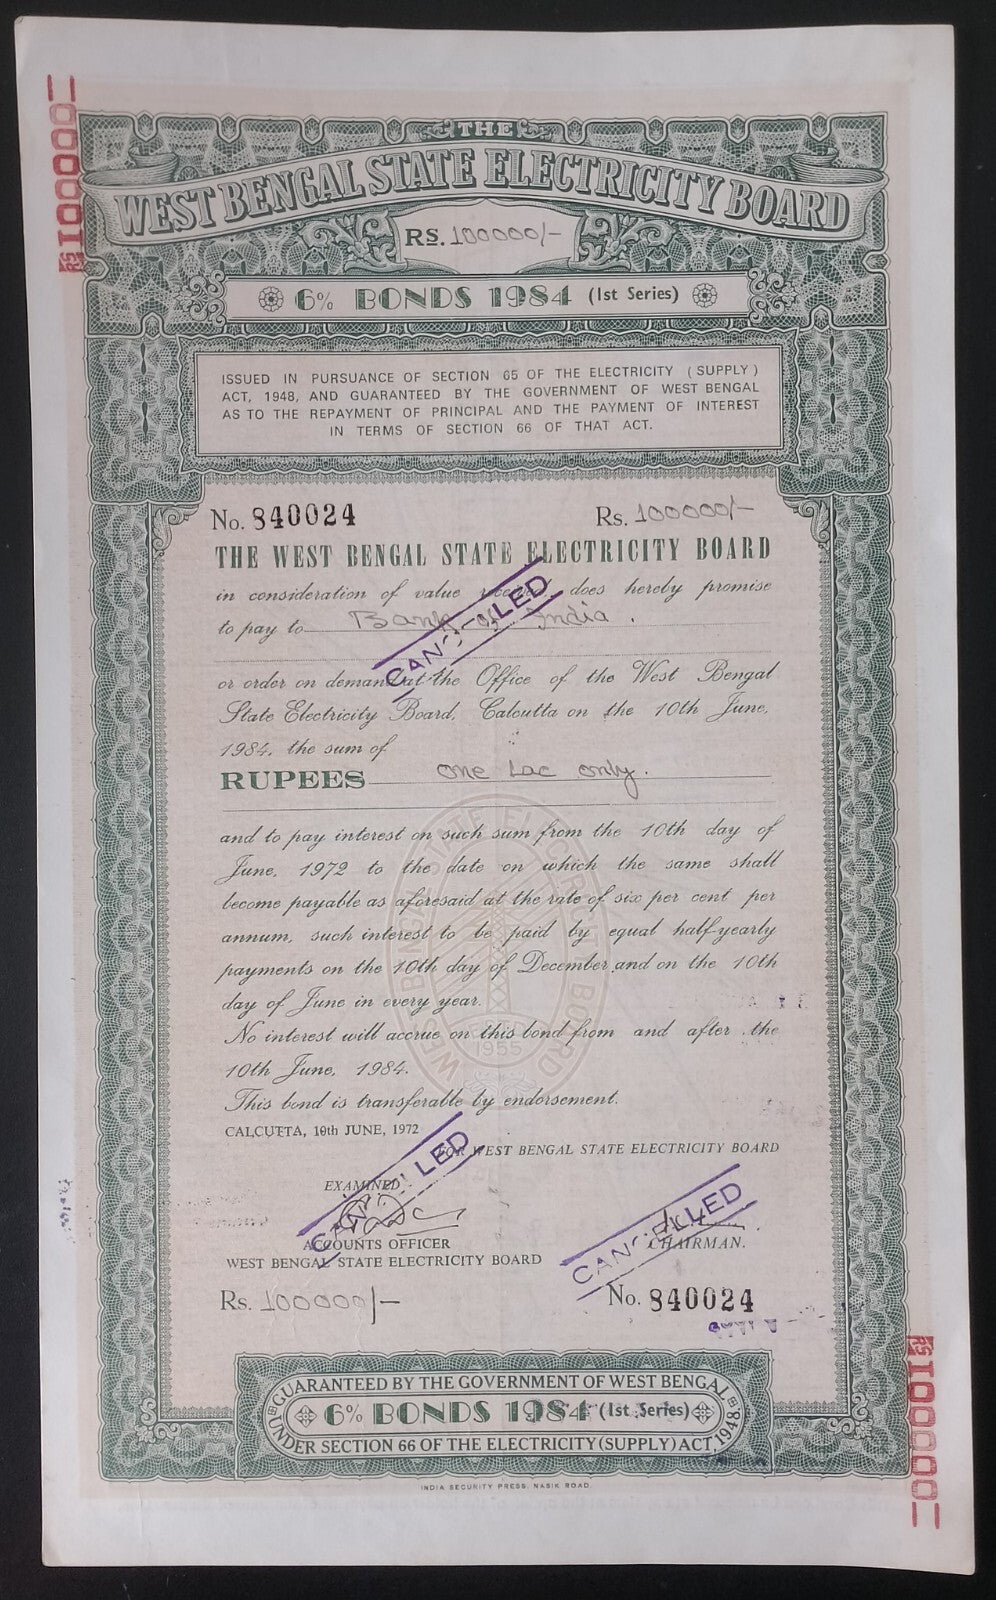 RS 100000
THE
WEST BENGAL STATE ELECTRICITY BOARD
RS. 100000/-
6% BONDS 1984 (1st Series)
ISSUED IN PURSUANCE OF SECTION 65 OF THE ELECTRICITY (SUPPLY)
ACT, 1948, AND GUARANTEED BY THE GOVERNMENT OF WEST BENGAL
AS TO THE REPAYMENT OF PRINCIPAL AND THE PAYMENT OF INTEREST
IN TERMS OF SECTION 66 OF THAT ACT.
No. 840024 Rs. 100000/-
THE WEST BENGAL STATE ELECTRICITY BOARD
in consideration of value does hereby promise
to pay to Bank of India.
CANCELLED
or order on demand at the Office of the West Bengal
State Electricity Board, Calcutta on the 10th June,
1984, the sum of
RUPEES one Lac only.
and to pay interest on such sum from the 10th day of
June, 1972 to the date on which the same shall
become payable as aforesaid at the rate of six per cent per
annum, such interest to be paid by equal half-yearly
payments on the 10th day of December and on the 10th
day of June in every year.
No interest will accrue on this bond from and after the
10th June, 1984.
This bond is transferable by endorsement.
WEST BENGAL STATE ELECTRICITY BOARD
1955
CALCUTTA, 10th JUNE, 1972
FOR WEST BENGAL STATE ELECTRICITY BOARD
EXAMINED
CANCELLED
ACCOUNTS OFFICER
WEST BENGAL STATE ELECTRICITY BOARD
CANCELLED
CHAIRMAN.
Rs. 100000/- No. 840024
GUARANTEED BY THE GOVERNMENT OF WEST BENGAL
6% BONDS 1984 (1st Series)
UNDER SECTION 66 OF THE ELECTRICITY (SUPPLY) ACT, 1948
INDIA SECURITY PRESS, NASIK ROAD.
RS 100000